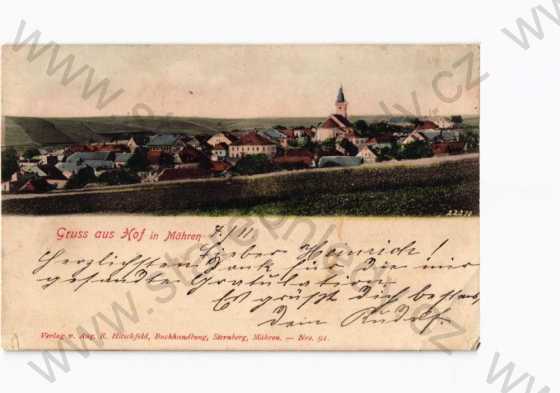 22274
Gruss aus Hof in Mähren
7./11.
Lieber Heinrich!
Herzlichsten Dank für die mir
gesandte Gratulation.
Es grüßt dich bestens
dein Rudolf.
Verlag v. Aug. R. Hitschfeld, Buchhandlung, Sternberg, Mähren. — Nro. 91.